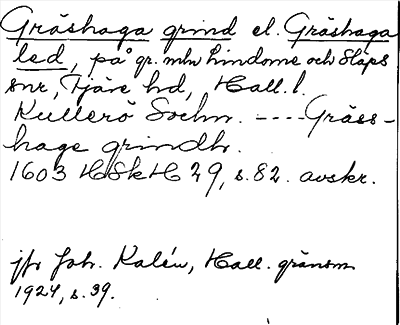 Gräshaga grind el. Gräshaga
led, på gr. mln Lindome och Släps
snr, Fjäre hd, Hall. l.
Kullerö Sochn. ---- Gräss-
hage grindh.
1603 HSkH 29, s. 82. avskr.
jfr Joh. Kalén, Hall. gränsm
1924, s. 39.